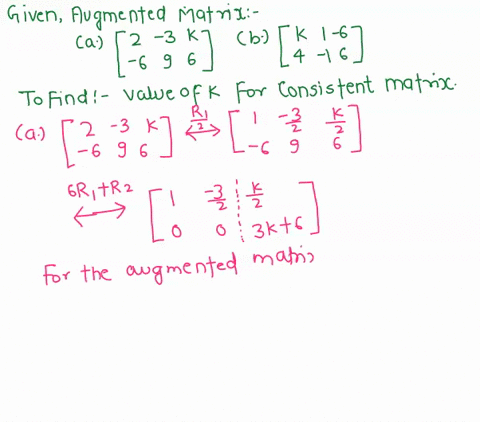 Given, Augmented Matrix:-
(a.) [2 -3 K; -6 9 6] (b.) [K 1 -6; 4 -1 6]
To Find:- Value of K For Consistent matrix.
(a.) [2 -3 K; -6 9 6] R1/2 ↔ [1 -3/2 K/2; -6 9 6]
6R1+R2 ↔ [1 -3/2 | K/2; 0 0 | 3K+6]
For the augmented matrix